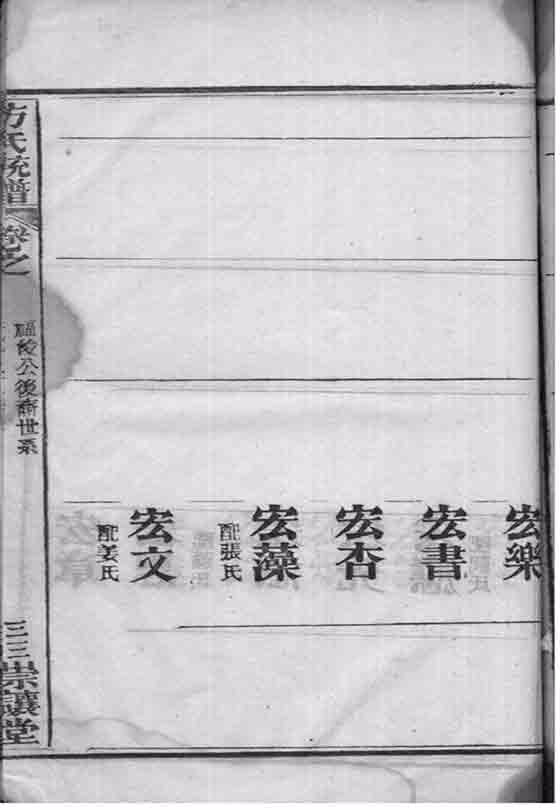 宏樂
宏書
宏杏
宏藻
配張氏
宏文
配姜氏
方氏統譜
卷之
公後裔世系
三三
崇讓堂